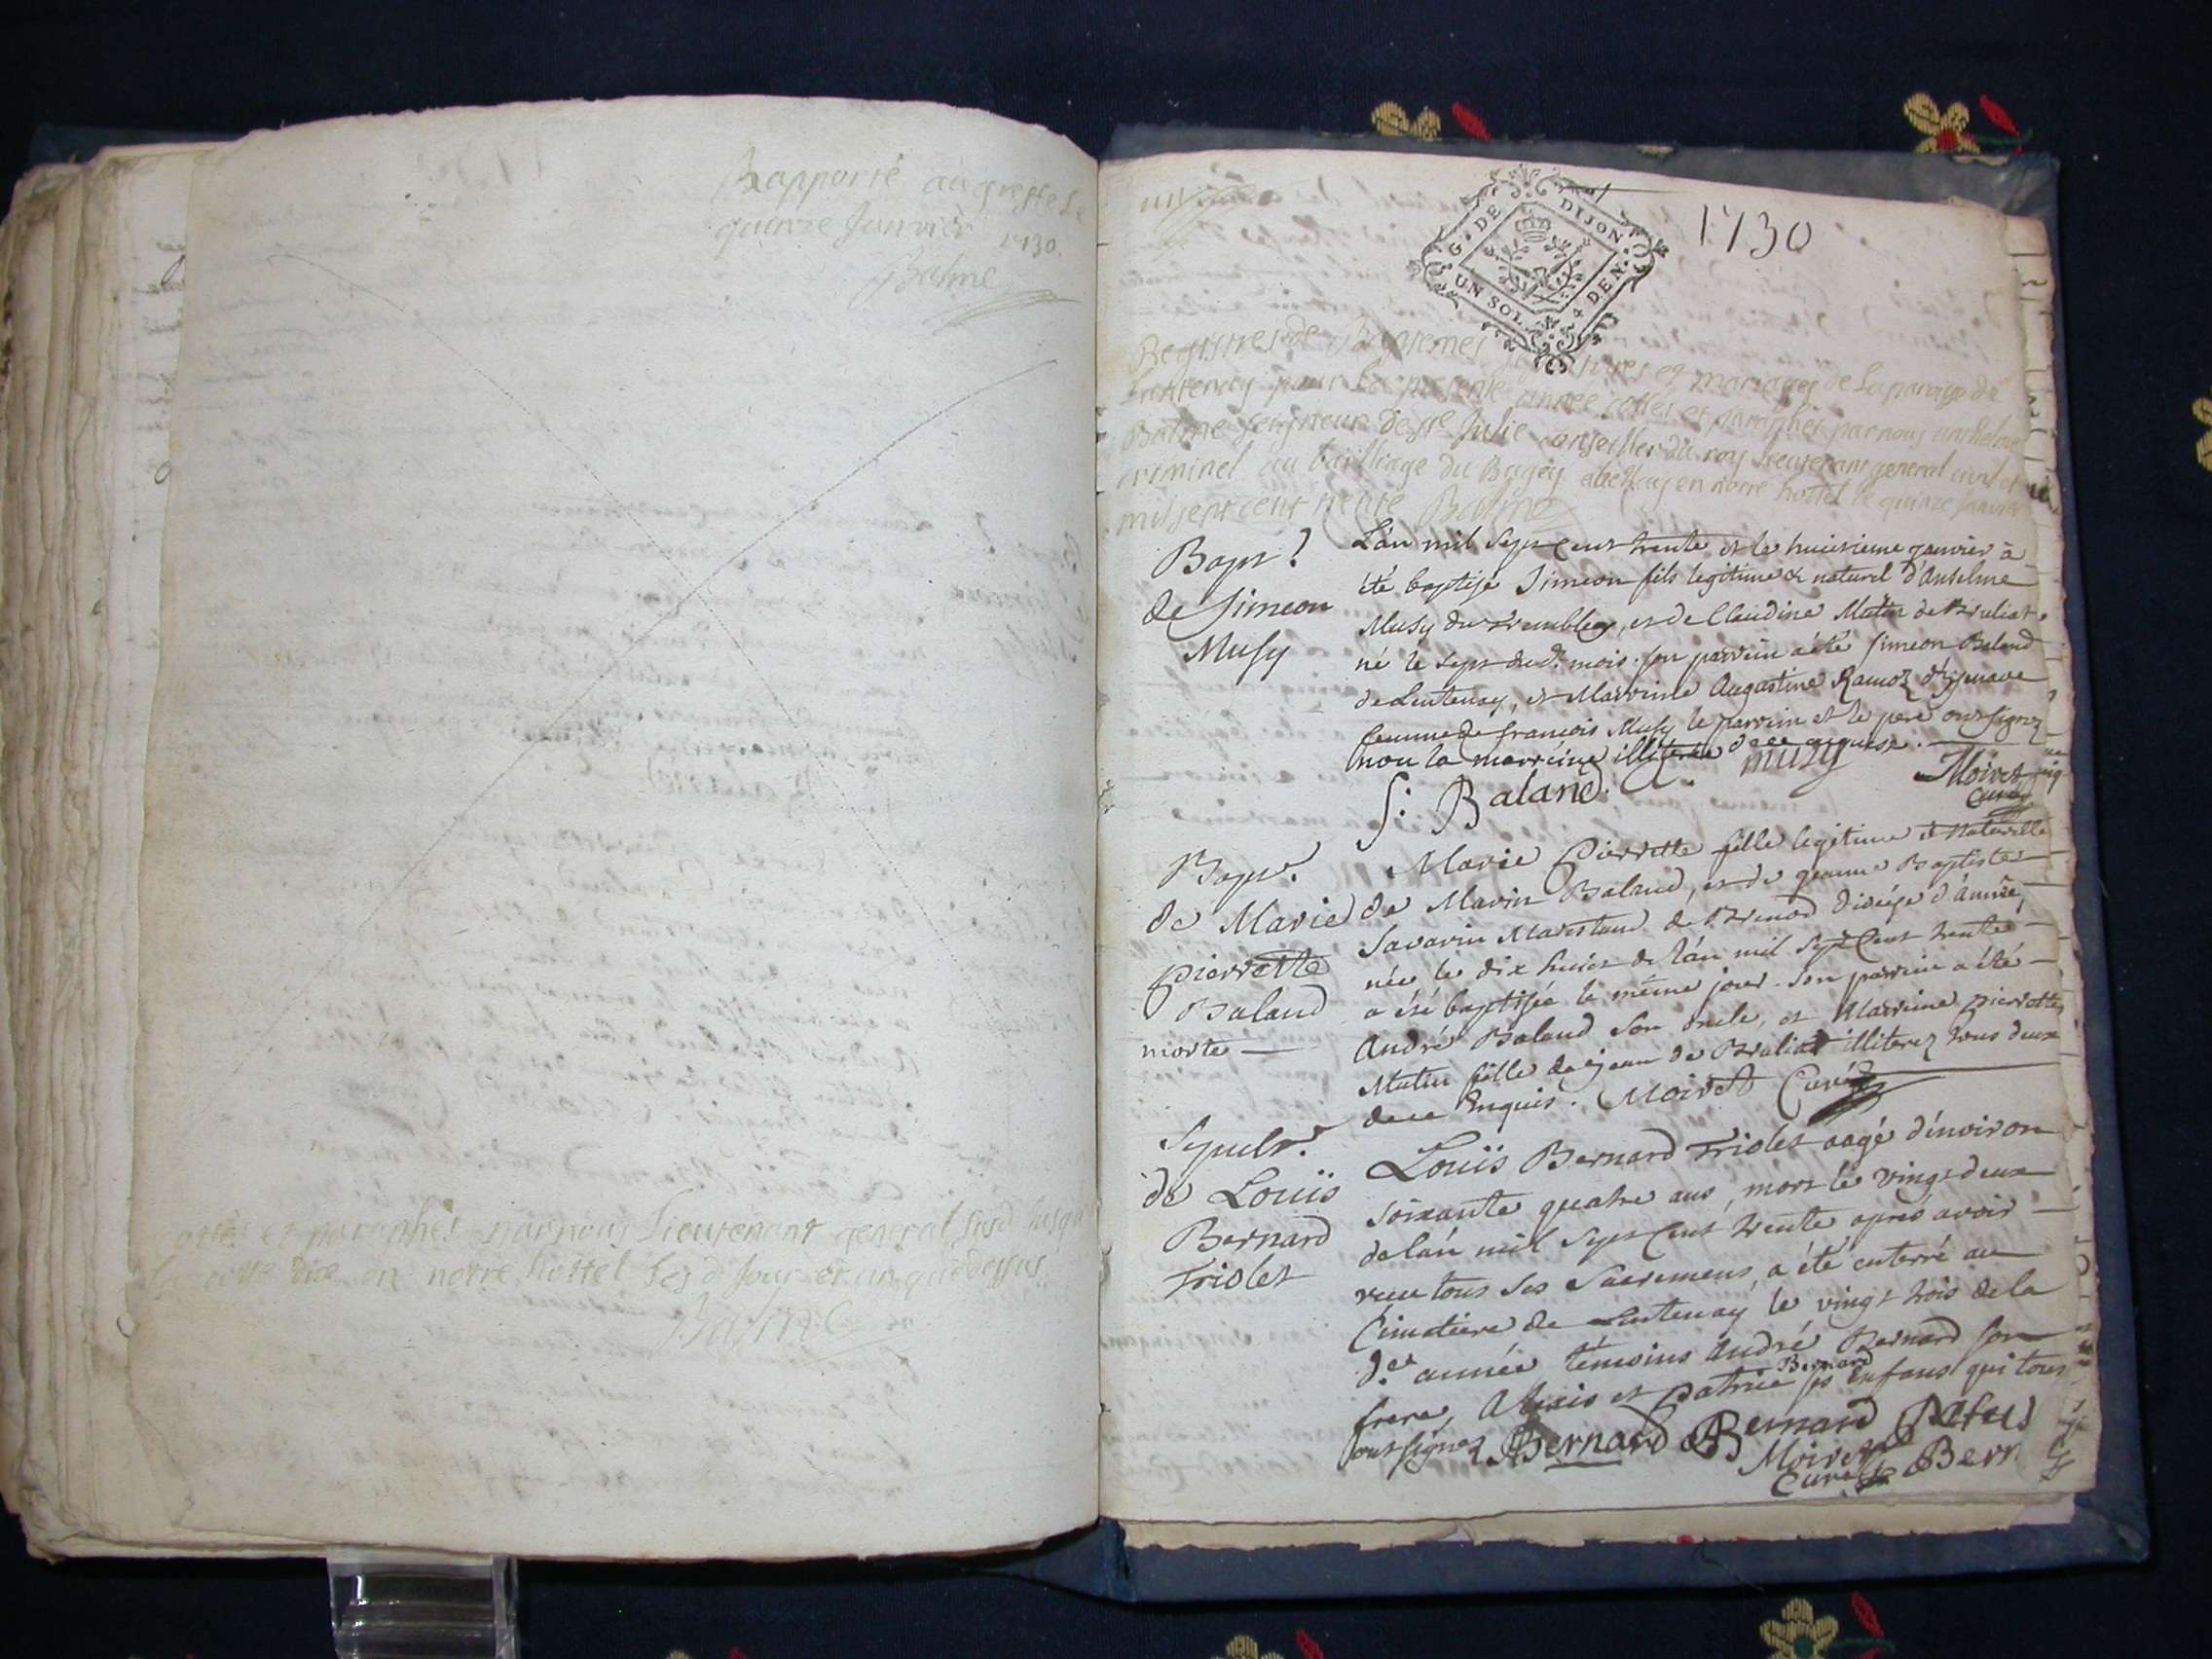 Rapporté au greffe le
quinze Janvier 1730.
Balme
cottés et paraphés par nous Lieutenant general susd jusqu
la cotte dice en notre hostel les d jour et an que dessus
Balme
1730
G. DE DIJON
UN SOL 4 DEN.
Registres de Baptemes sepultures et mariages de La paroisse de
Lantenay pour la presente année cottés et paraphés par nous anthelme
Balme seigneur de ste Julie conseiller du roy lieutenant general civil et
criminel au bailliage du Bugey a belley en notre hostel le quinze janvier
mil sept cent trente Balme
Bapt.
de Simeon
Musy
L'an mil Sept Cent trente et le huictieme janvier à
été baptisé Simeon fils legitime & naturel d'Anselme
Musy du Trembley, et de Claudine Mutin de Bruliat
né le sept du d. mois. son parrin a été Simeon Baland
de Lentenay, et Marrine Augustine Ramoz d'Izenave
femme de françois Musy le parrin et le pere ont signez
non la marrine illiterée de ce enquise.
S: Baland. A. musy Moiret
Curé
Bapt.
de Marie
pierrette
Baland
morte
Marie Pierrette fille legitime et Naturelle
de Marin Baland, et de jeanne Baptiste
Savarin Marestand de Brenod Diocése d'Annecy
née le dix huict de l'an mil Sept Cent trente
a été baptisée le même jour. Son parrin a été
André Baland Son oncle, et Marrine pierrette
Mutin fille de jean de Bruliat illiterez tous deux
de ce Enquis. Moiret Curé
Sepult.
de Louïs
Bernard
Triolet
Louïs Bernard Triolet aagé d'environ
soixante quatre ans, mort le vingt deux
de l'an mil Sept Cent trente aprés avoir
receu tous Ses Sacremens, a été enterré au
Cimetiere de Lentenay le vingt trois de la
d.e année témoins André Bernard son
frere, Alexis et Patrice Bernard ses enfans qui tous
ont signez ABernard ABernard Patris
Moiret Curé Bern